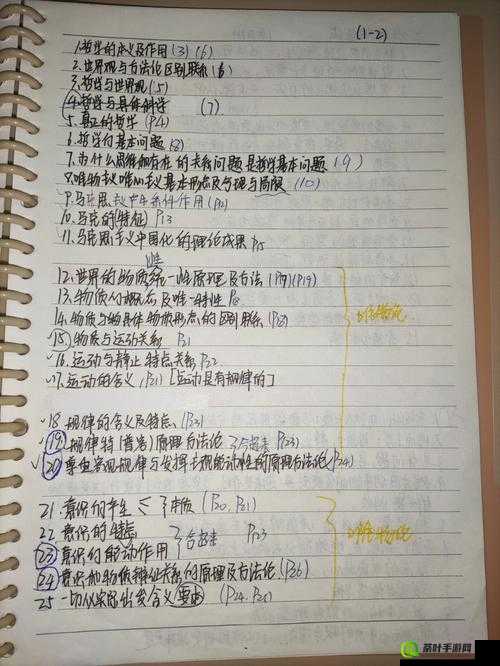 (1-2)
1.哲学的本义及作用(3)(6)
2.世界观与方法论区别联系(6)
3.哲学与世界观(5)
4.哲学与具体科学 (7)
5.真正的哲学 (P4)
6.哲学的基本问题(8)
7.为什么思维和存在的关系问题是哲学基本问题(9)
8.唯物主义唯心主义基本形态及合理与局限(10)
9.马克思主义 条件作用(P12)
10.马克的(特征) P13
11.马克思主义中国化的理论成果P15
12.世界的物质统一性原理及方法(P17)(P19)
13.物质的概念及唯一特性P18
14.物质与物具体物质形态的区别联系(P18)
15.物质与运动关系 P21
16.运动与静止特点关系P22
17.运动的含义,P21)[运动是有规律的]
18.规律的含义及特点(P23)
19.规律特(普客)原理方法论 合起来 P23)
20.尊重客观规律与发挥主观能动性的原理方法论P24)
21.意识的产生 本质 (P20、P21)
22.意识的特点
23.意识的能动作用 合起来 P123
24.意识和物质辩证关系的原理及方法论(P26)
25 一切从实际出发含义 要求 (P24.P20)
唯物论
唯物论
茶叶手游网